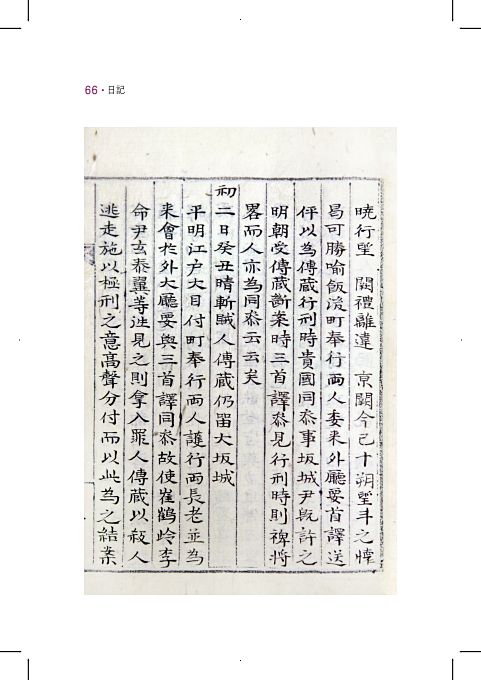 66 · 日記
曉行望 闕禮離違 京闕今已十朔望斗之悰
曷可勝喻飯後町奉行兩人委來外廳要首譯送
伻以為傳蔵行刑時貴國同叅事坂城尹旣許之
明朝受傳蔵斷案時三首譯叅見行刑時則裨將
畧而人亦為同叅云云矣
初二日癸丑晴斬賊人傳蔵仍留大坂城
平明江户大目付町奉行兩人護行兩長老並為
來會於外大廳要與三首譯同叅故使崔鶴岭李
命尹玄泰翼等徃見之則拿入罪人傳蔵以殺人
逃走施以極刑之意高聲分付而以此為之結案